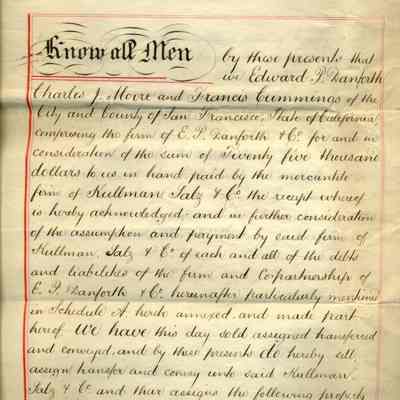 Know all Men by these presents that
we Edward P. Danforth
Charles J. Moore and Francis Cummings of the
City and County of San Francisco, State of California
comprising the firm of E. P. Danforth & Co. for and in
consideration of the sum of Twenty five thousand
dollars to us in hand paid by the mercantile
firm of Kullman Salz & Co the receipt whereof
is hereby acknowledged and in further consideration
of the assumption and payment by said firm of
Kullman, Salz & Co of each and all of the debts
and liabilities of the firm and Copartnership of
E. P. Danforth & Co. hereinafter particularly mentioned
in Schedule A. hereto annexed and made part
hereof We have this day sold assigned transferred
and conveyed and by these presents do hereby sell
assign transfer and convey unto said Kullman
Salz & Co and their assigns the following property